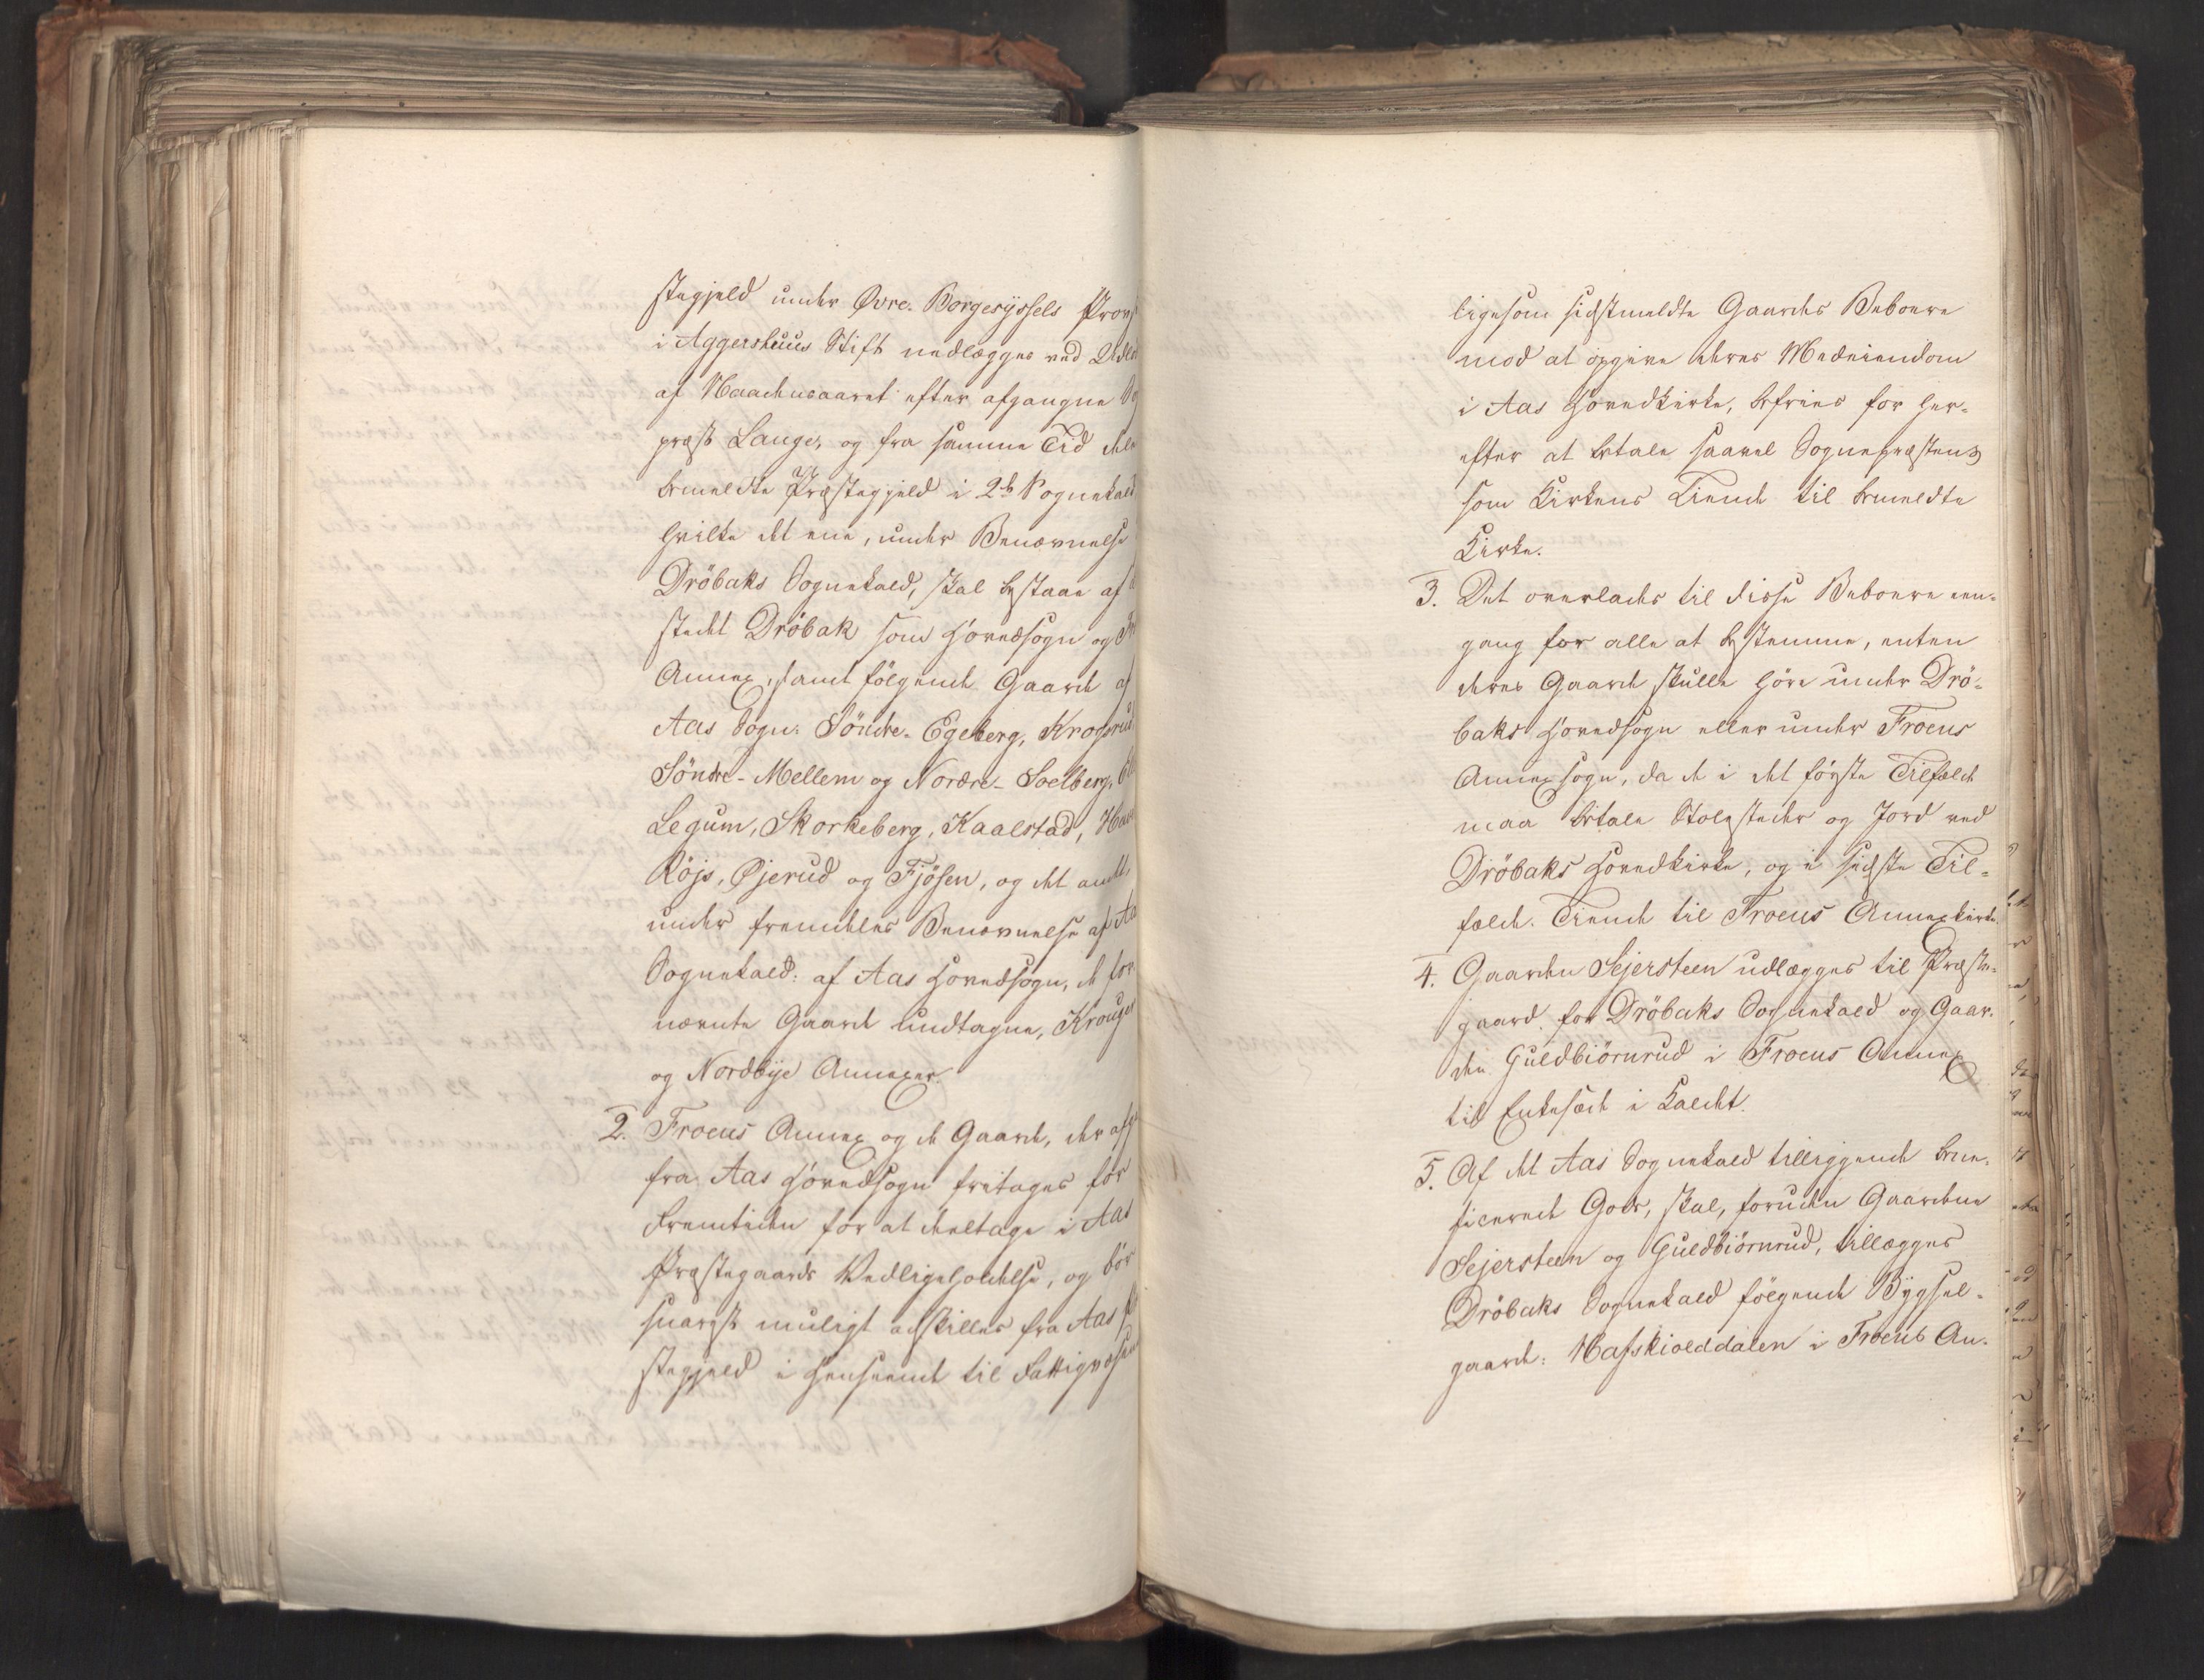 stegjeld under Øvre-Borgesyssels
i Aggershuus Stift nedlægges ved
af Naadensaaret efter afgangne
præst Lange, og fra samme Tid
bemeldte Præstegjeld i 2de Sognekald
hvilke det ene, under Benævnelse
Dröbaks Sognekald, skal bestaae af
stedet Dröbak som Hovedsogn og
Annex, samt følgende Gaarde af
Aas Sogn: Söndre-Egeberg, Krogsrud
Söndre-Mellem og Nordre-Soelberg,
Legum, Skorkeberg, Kaalstad,
Röjs, Øjerud og Fjösen, og det andet,
under fremdeles Benævnelse af Aas
Sognekald: af Aas Hovedsogn, de for
nævnte Gaarde undtagne,
og Nordbye Annexer.
2. Froens Annex og de Gaarde, der
fra Aas Hovedsogn fritages for
Fremtiden for at deeltage i Aas
Præstegaards Vedligeholdelse, og bör
snarest muligt adskilles fra Aas
stegjeld i Henseende til Fattigvæsen
ligesom sidstmeldte Gaardes Beboere
mod at opgive deres Medeiendom
i Aas Hovedkirke, befries for her-
efter at betale saavel Sognepræstens
som Kirkens Tiende til bemeldte
Kirke.
3. Det overlades til disse Beboere een-
gang for alle at bestemme, enten
deres Gaarde skulle höre under Drö-
baks Hovedsogn eller under Froens
Annexsogn, da de i det förste Tilfælde
maa betale Stolestader og Jord ved
Dröbaks Hovedkirke, og i sidste Til-
fælde Tiende til Froens Annexkirke.
4. Gaarden Sejersteen udlægges til Præste-
gaard for Dröbaks Sognekald og Gaar-
den Guldbiörnrud i Froens Annex
til Enkesæde i Kaldet.
5. Af det Aas Sognekald tilliggende bene-
ficerede Gods, skal, foruden Gaardene
Sejersteen og Guldbiörnrud, tillægges
Dröbaks Sognekald følgende Bygsel-
gaarde: Hafskiolddalen i Froens An-